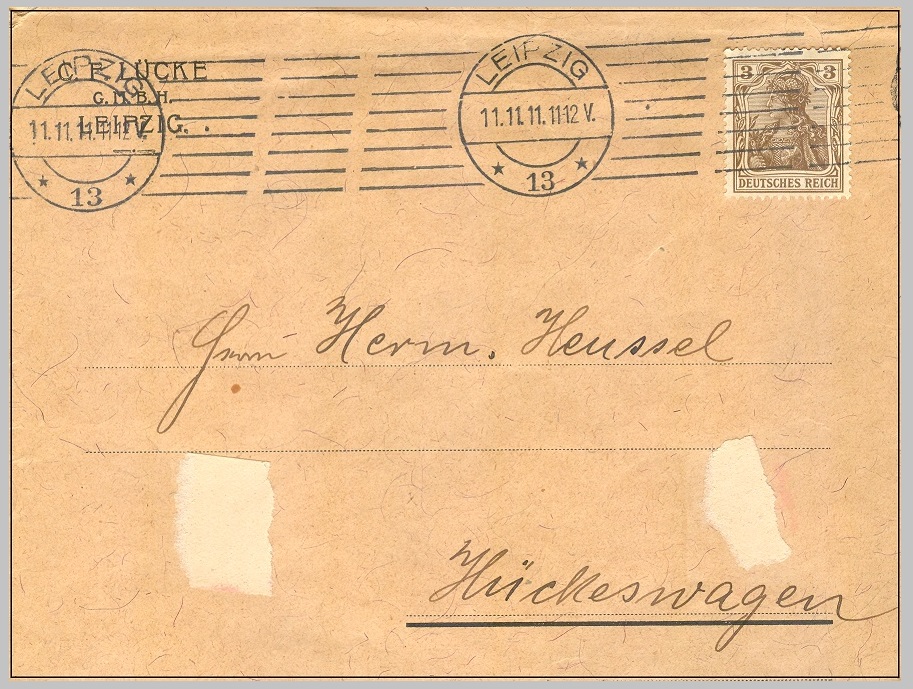 C. F. LÜCKE
G.M.B.H.
LEIPZIG.
LEIPZIG
11.11.11.11-12 V.
13
LEIPZIG
11.11.11.11-12 V.
13
3 3
DEUTSCHES REICH
Herrn Herm. Heussel
Hückeswagen